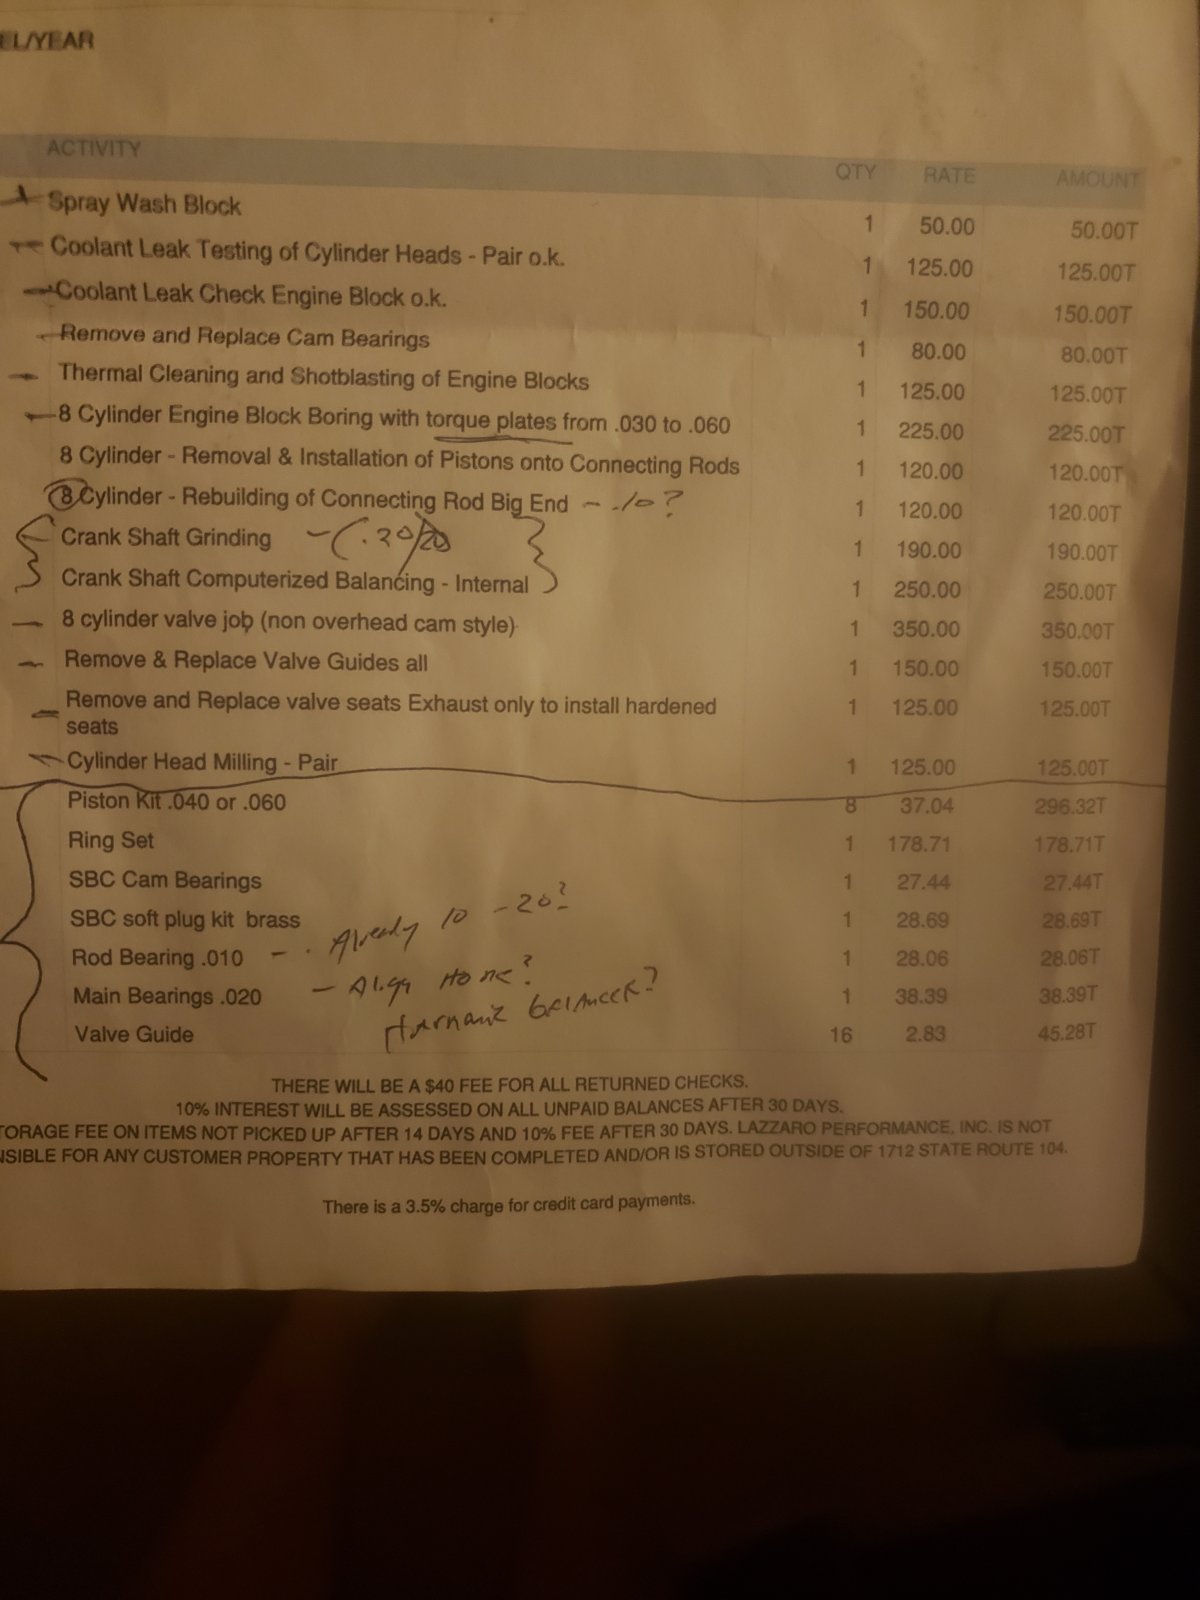 EL/YEAR
ACTIVITY QTY RATE AMOUNT
Spray Wash Block 1 50.00 50.00T
Coolant Leak Testing of Cylinder Heads - Pair o.k. 1 125.00 125.00T
Coolant Leak Check Engine Block o.k. 1 150.00 150.00T
Remove and Replace Cam Bearings 1 80.00 80.00T
Thermal Cleaning and Shotblasting of Engine Blocks 1 125.00 125.00T
8 Cylinder Engine Block Boring with torque plates from .030 to .060 1 225.00 225.00T
8 Cylinder - Removal & Installation of Pistons onto Connecting Rods 1 120.00 120.00T
8 Cylinder - Rebuilding of Connecting Rod Big End - .10? 1 120.00 120.00T
Crank Shaft Grinding - (.20/20 1 190.00 190.00T
Crank Shaft Computerized Balancing - Internal 1 250.00 250.00T
8 cylinder valve job (non overhead cam style) 1 350.00 350.00T
Remove & Replace Valve Guides all 1 150.00 150.00T
Remove and Replace valve seats Exhaust only to install hardened 1 125.00 125.00T
seats
Cylinder Head Milling - Pair 1 125.00 125.00T
Piston Kit .040 or .060 8 37.04 296.32T
Ring Set 1 178.71 178.71T
SBC Cam Bearings 1 27.44 27.44T
SBC soft plug kit brass 1 28.69 28.69T
Rod Bearing .010 - . Already 10 - 20? 1 28.06 28.06T
Main Bearings .020 - Align Hone? 1 38.39 38.39T
Valve Guide Harmanic Balancer? 16 2.83 45.28T
THERE WILL BE A $40 FEE FOR ALL RETURNED CHECKS.
10% INTEREST WILL BE ASSESSED ON ALL UNPAID BALANCES AFTER 30 DAYS.
TORAGE FEE ON ITEMS NOT PICKED UP AFTER 14 DAYS AND 10% FEE AFTER 30 DAYS. LAZZARO PERFORMANCE, INC. IS NOT
NSIBLE FOR ANY CUSTOMER PROPERTY THAT HAS BEEN COMPLETED AND/OR IS STORED OUTSIDE OF 1712 STATE ROUTE 104.
There is a 3.5% charge for credit card payments.